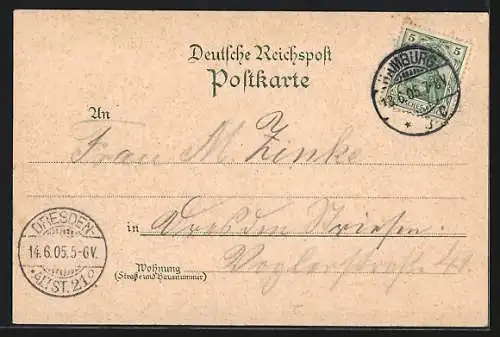 Deutsche Reichspost
Postkarte
5 5
HAMBURG
An
Frau M. Zinke
in Dresden Striesen
Wohnung
(Straße und Hausnummer)
Voglerstraße 41
DRESDEN-
14.6.05.5-6V.
ALTST.21